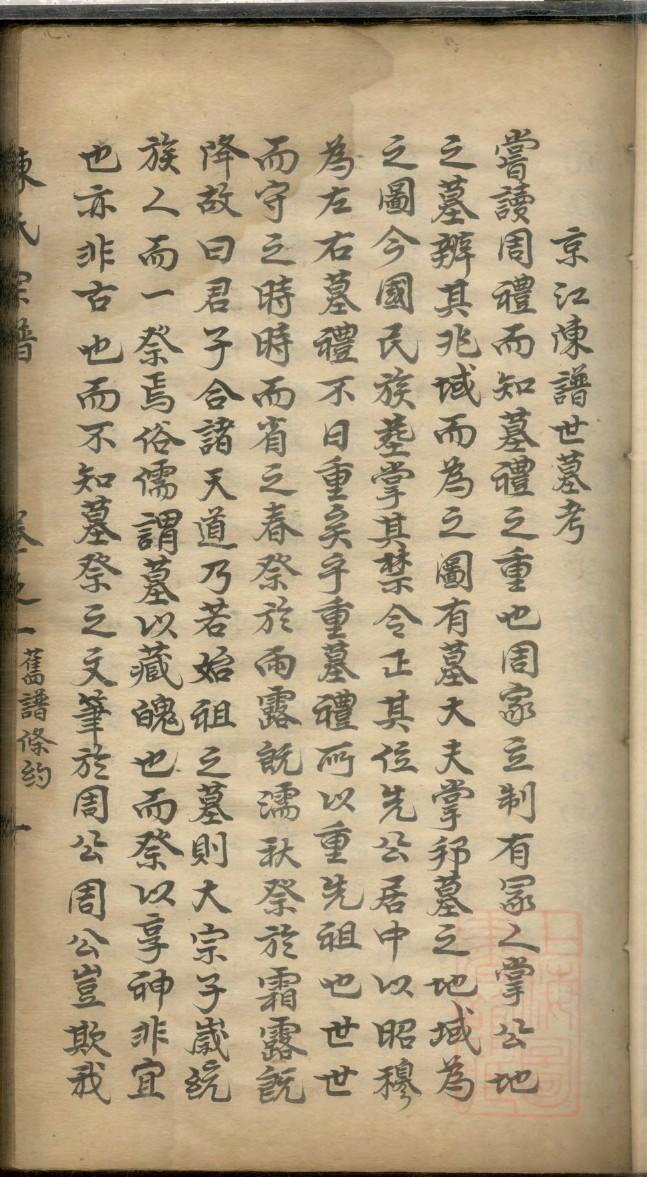 京江陳譜世墓考
嘗讀周禮而知墓禮之重也周家立制有冢人掌公地
之墓辨其兆域而為之圖有墓大夫掌邦墓之地域為
之圖令國民族塟掌其禁令正其位先公居中以昭穆
為左右墓禮不日重矣乎重墓禮所以重先祖也世世
而守之時時而省之春祭於雨露既濡秋祭於霜露既
降故曰君子合諸天道乃若始祖之墓則大宗子歲統
族人而一祭焉俗儒謂墓以藏魄也而祭以享神非宜
也亦非古也而不知墓祭之文筆於周公周公豈欺我
陳氏宗譜
卷之一
舊譜條約
一
上海圖